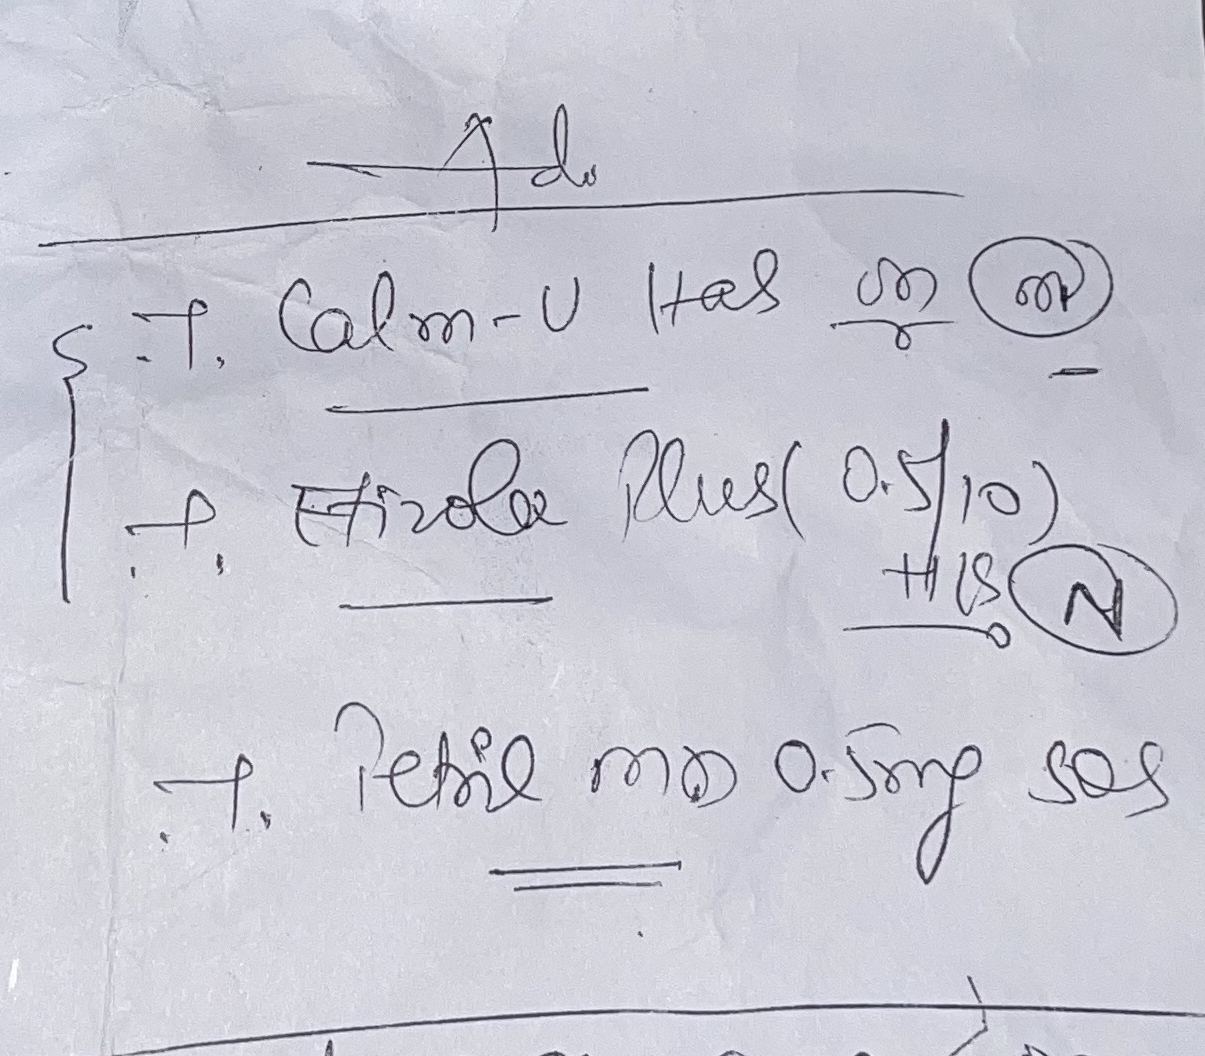 Ad.
T. Calm-U Half on M
T. Etizola Plus (0.5/10)
H/S N
T. Petril MD 0.5mg SOS